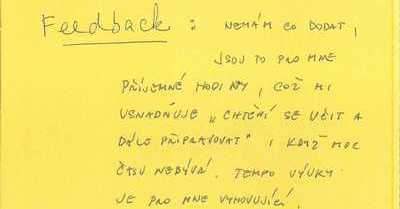 Feedback : NEMÁM CO DODAT,
JSOU TO PRO MNE
PŘÍJEMNÉ HODINY, COŽ MI
USNADŇUJE „CHTĚNÍ SE UČIT A
DÁLE PŘIPRAVOVAT" I KDYŽ MOC
ČASU NEBÝVÁ. TEMPO VÝUKY
JE PRO MNE VYHOVUJÍCÍ.